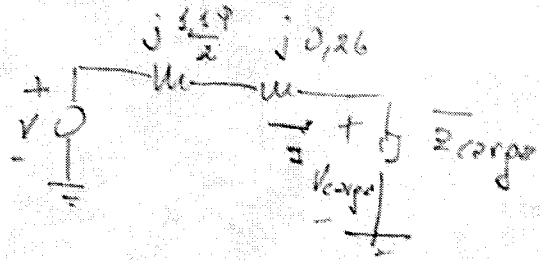 j 1,19/2 j 0,26
+
V
-
I
+
Vcarga
-
Zcarga